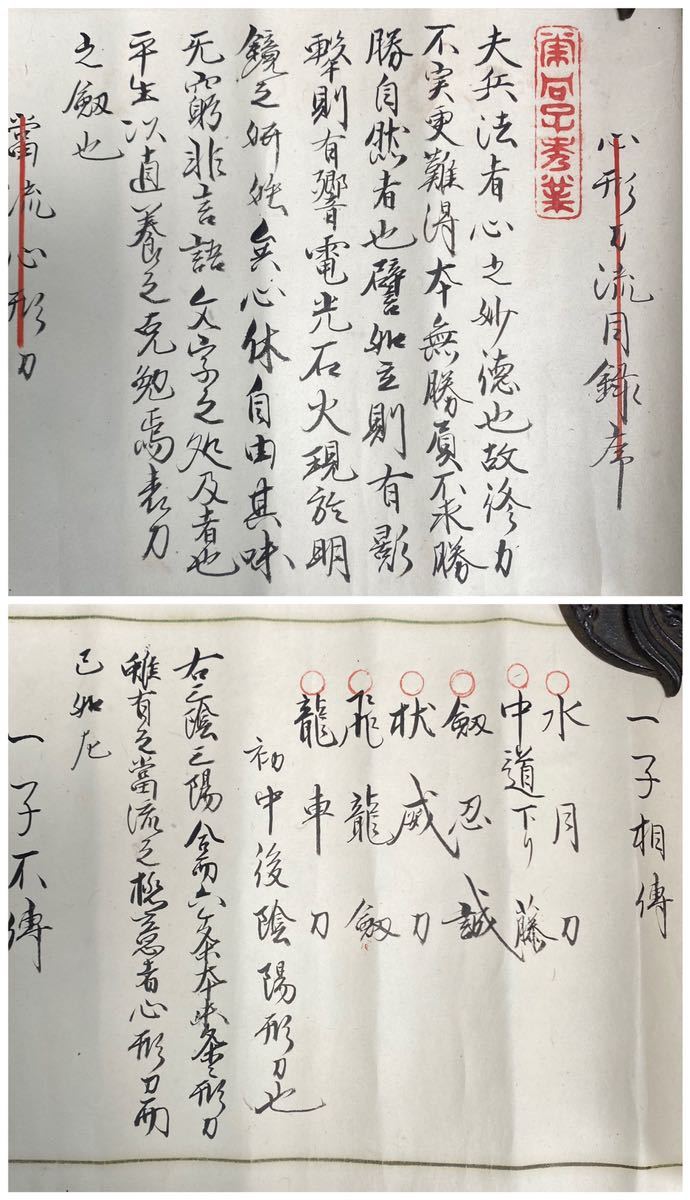 心形刀流目録序
夫兵法者心之妙徳也故修力
不実更難得本無勝負不求勝
勝自然者也譬如立則有影
撃則有響電光石火現於明
鏡之妍媸矣心体自由其味
无窮非言語文字之処及者也
平生以直養之克勉焉表刀
之劔也
當流心形刀
一子相傳
水月刀
中道下リ藤
劔忍誠
状威刀
飛龍劔
龍車刀
初中後陰陽形刀也
右三陰三陽合而六条本
形刀
雖有之當流之極意者心形刀而
已如左
一子不傳